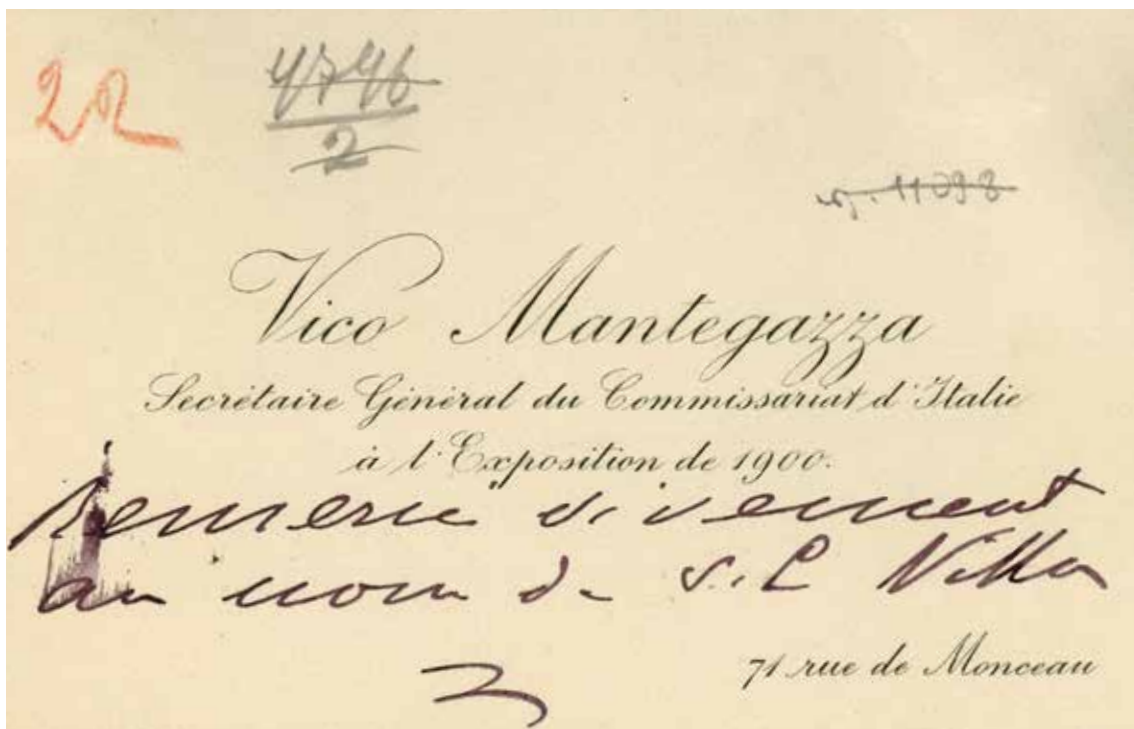 22
2
11098
Vico Mantegazza
Secrétaire Général du Commissariat d'Italie
à l'Exposition de 1900.
Remercie vivement
au nom de S.E Villa
71 rue de Monceau